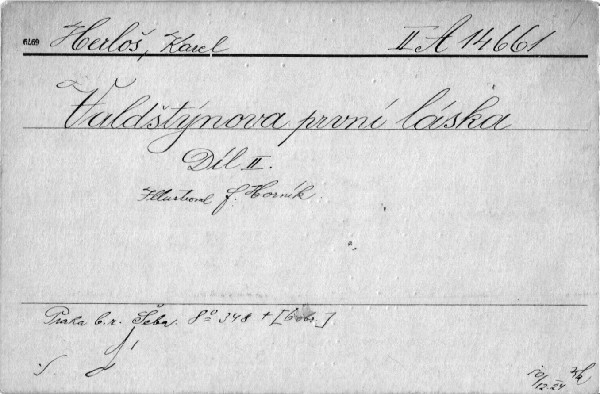 6469 Herloš, Karel II A 14661
Valdštýnova první láska
Díl II.
Illustroval f. Horník.
Praha b.r. Šeba. 8° 348 + [6 obr.]
10/12.24